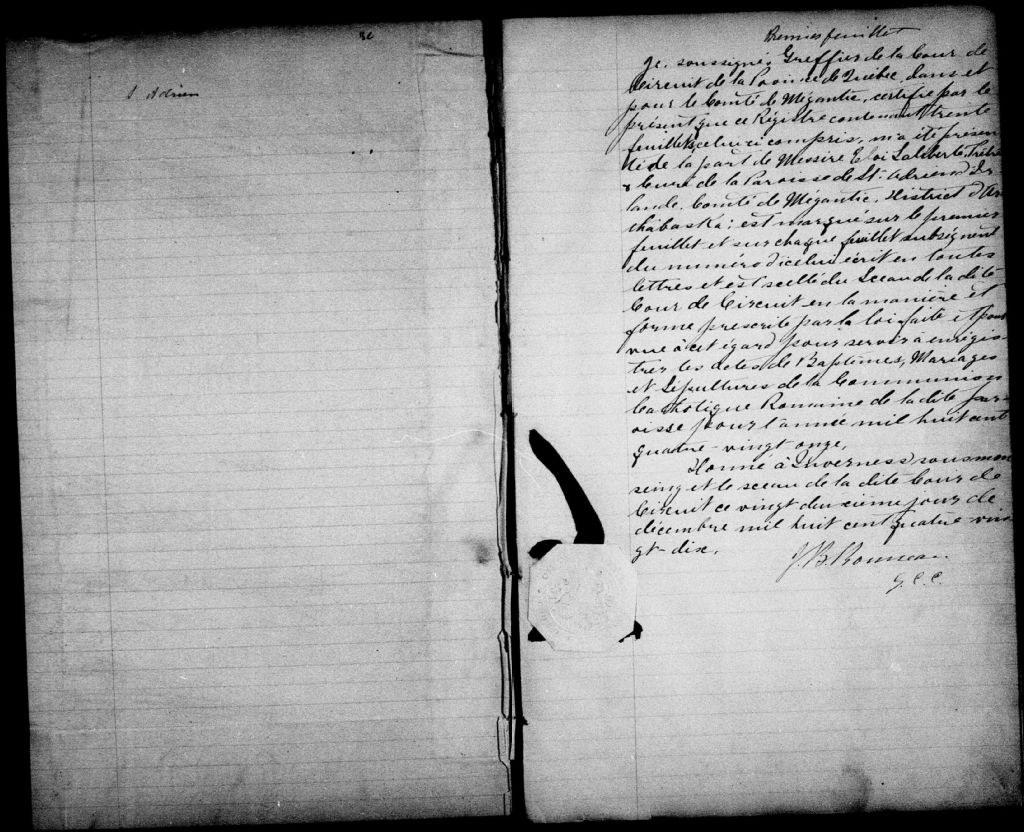 30
S Adrien
Premier feuillet
Je, soussigné, Greffier de la Cour de
Circuit de la Province de Québec, dans et
pour le Comté de Mégantic, certifie par le
présent que ce Régistre contenant trente
feuillets, celui ci compris, m'a été présen
té de la part de Messire Eloi Laliberté, Prêtre
& Curé de la Paroisse de St. Adrien d'Ir
lande, Comté de Mégantic, District d'Ar
thabaska; est marqué sur le premier
feuillet et sur chaque feuillet subséquent
du numéro d'icelui écrit en toutes
lettres et est scellé du Sceau de la dite
Cour de Circuit en la manière et
forme prescrite par la loi faite et pour
vue à cet égard pour servir a enrégis-
trer les actes de Baptêmes, Mariages
et Sépultures de la Communion
Catholique Romaine de la dite par-
oisse pour l'année mil huit cent
quatre-vingt onze,
Donné à Inverness sous mon
seing et le sceau de la dite Cour de
Circuit ce vingt deuxième jour de
décembre mil huit cent quatre vin
gt-dix.
J. B. Rousseau
G. C. C.